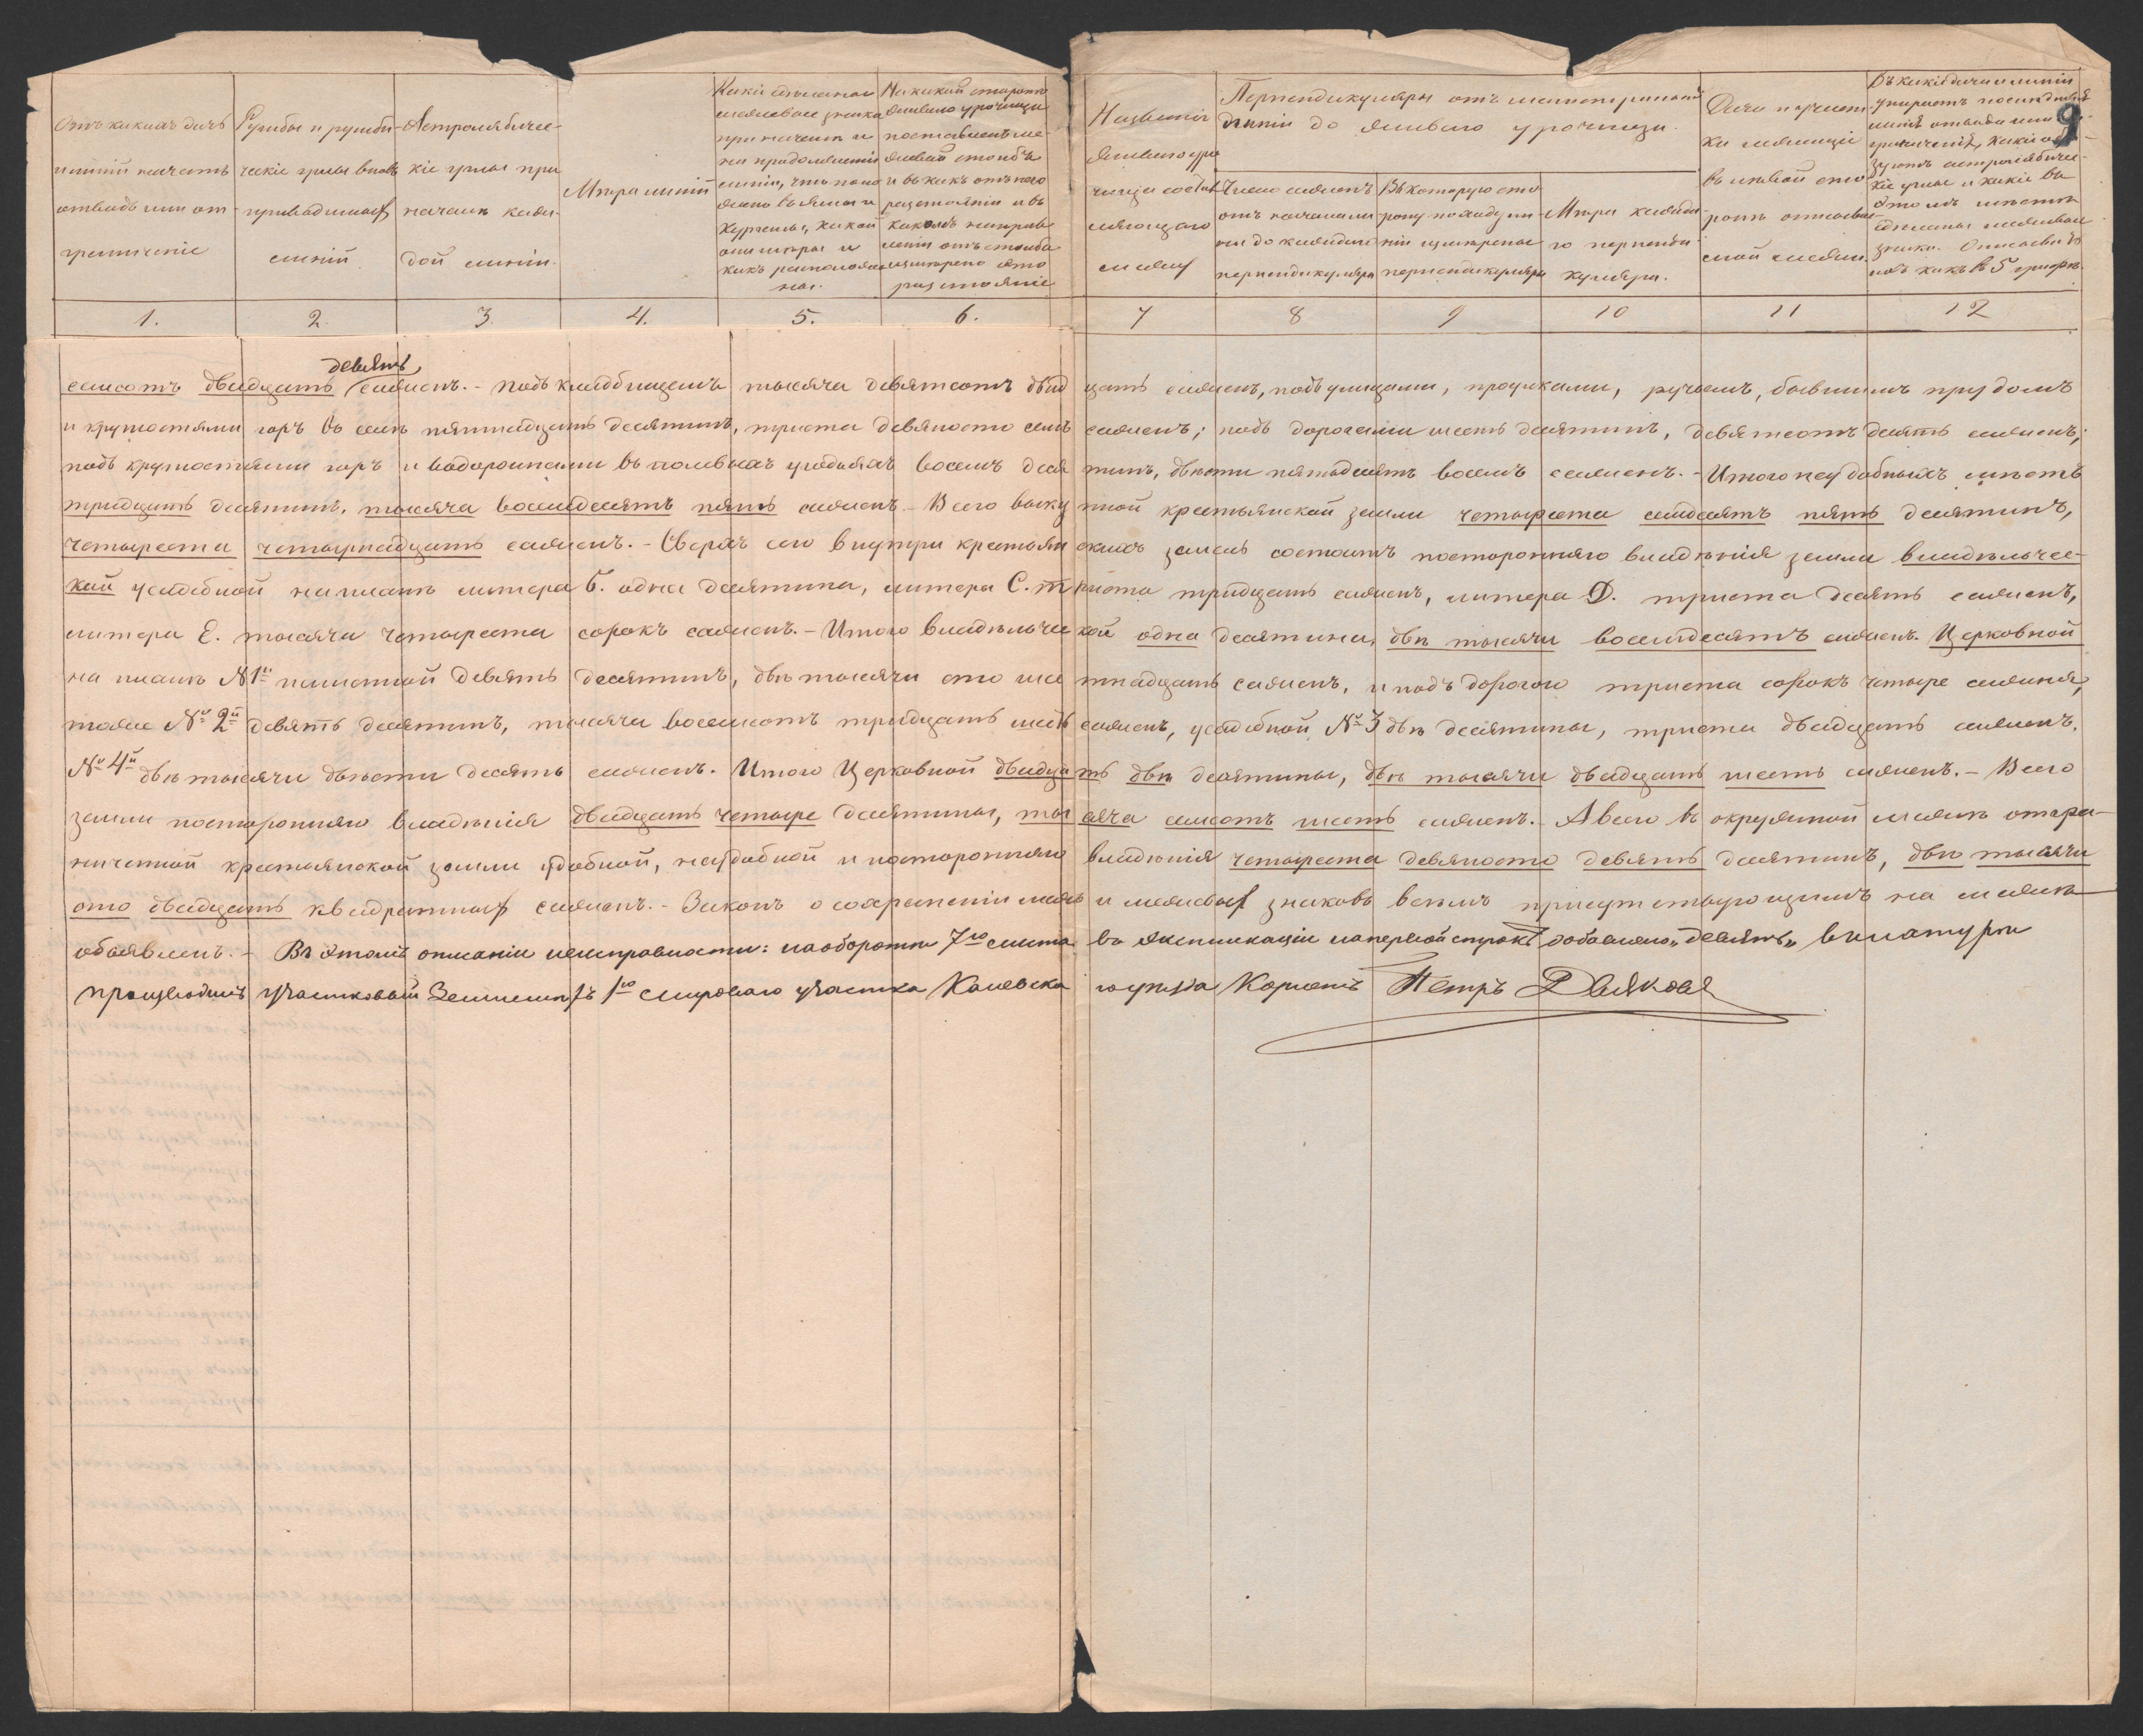 9
Отъ какихъ дачъ
и линій начатъ
отводъ или от-
граниченіе
Румбы и румби-
ческіе углы вновь
приводимыхъ
линій
Астролябичес-
кіе углы при
началѣ каж-
дой линіи.
Мѣра линій
Какіе сдѣланы
межевые знаки
при началѣ и
на продолженіи
линіи, что поло-
жено въ ямы и
курганы, какой
они мѣры и
какъ располож-
ны.
На какой сторонѣ
живаго урочища
поставленъ ме-
жевой столбъ
и въ какъ отъ него
разстояніи и въ
какомъ направ-
леніи отъ столба
измѣрено это
разстояніе
Названіе
живаго уро-
чища состав-
ляющаго
межу
Перпендикуляры отъ магистральной
линіи до живаго урочища.
Число сажень
отъ начала ли-
ніи до каждаго
перпендикуляра
Въ которую сто-
рону по ходу ли-
ніи измѣрены
перпендикуляры
Мѣра каждa-
го перпенди-
куляра.
Дачи и участ-
ки лежащіе
въ лѣвой сто-
ронѣ описывае-
мой межи.
Въ какіе дачи и линіи
упираетъ послѣдняя
линія отвода или
граниченія, какіе об-
зуютъ астролябичес-
кіе углы и какіе въ
этомъ мѣстѣ
сдѣланы межевые
знаки. Описывать
ихъ какъ въ 5 графѣ.
1. 2. 3. 4. 5. 6. 7 8 9 10 11 12
девять
семсотъ двадцать сажень. - Подъ кладбищемъ тысяча девятсотъ двадцать сажень, подъ улицами, проулками, ручьемъ, бывшимъ прудомъ
и крутостями горъ въ селѣ пятнадцать десятинъ, триста девяносто семь сажень; подъ дорогами шесть десятинъ, девятсотъ десять сажень;
подъ крутостями горъ и водороинами въ полевыхъ угодьяхъ восемь десятинъ, двѣсти пятьдесятъ восемь сажень. - Итого неудобныхъ мѣстъ
тридцать десятинъ, тысяча восемдесятъ пять сажень. - Всего выкупной крестьянской земли четыреста семдесятъ пять десятинъ,
четыреста четырнадцать сажень. - Сверхъ сего внутри крестьянскихъ земель состоитъ посторонняго владѣнія земли владѣльчес-
кой усадебной на планѣ литера Б. одна десятина, литера С. триста тридцать сажень, литера D. триста десять сажень,
литера Е. тысяча четыреста сорокъ сажень. - Итого владѣльческой одна десятина, двѣ тысячи восемдесятъ сажень. Церковной
на планѣ № 1й пахотной девять десятинъ, двѣ тысячи сто шестнадцать сажень, и подъ дорогою триста сорокъ четыре сажени,
тоже № 2й девять десятинъ, тысяча восемсотъ тридцать шесть сажень, усадебной № 3 двѣ десятины, триста двадцать сажень.
№ 4й двѣ тысячи двѣсти десять сажень. Итого Церковной двадцать двѣ десятины, двѣ тысячи двадцать шесть сажень. - Всего
земли посторонняго владѣнія двадцать четыре десятины, тысяча семсотъ шесть сажень. - А всего въ окружной межѣ отгра-
ниченной крестьянской земли удобной, неудобной и посторонняго владѣнія четыреста девяносто девять десятинъ, двѣ тысячи
сто двадцать квадратныхъ сажень. - Законъ о сохраненіи межъ и межевыхъ знаковъ всѣмъ присутствующимъ на межѣ
объявленъ. - Въ этомъ описаніи неисправности: на оборотѣ 7го листа въ экспликаціи на первой строкѣ добавлено „девять„ в натурѣ
производилъ участковый Землемѣръ 1го мироваго участка Каневска го уѣзда Корнетъ Петръ Дьяковъ